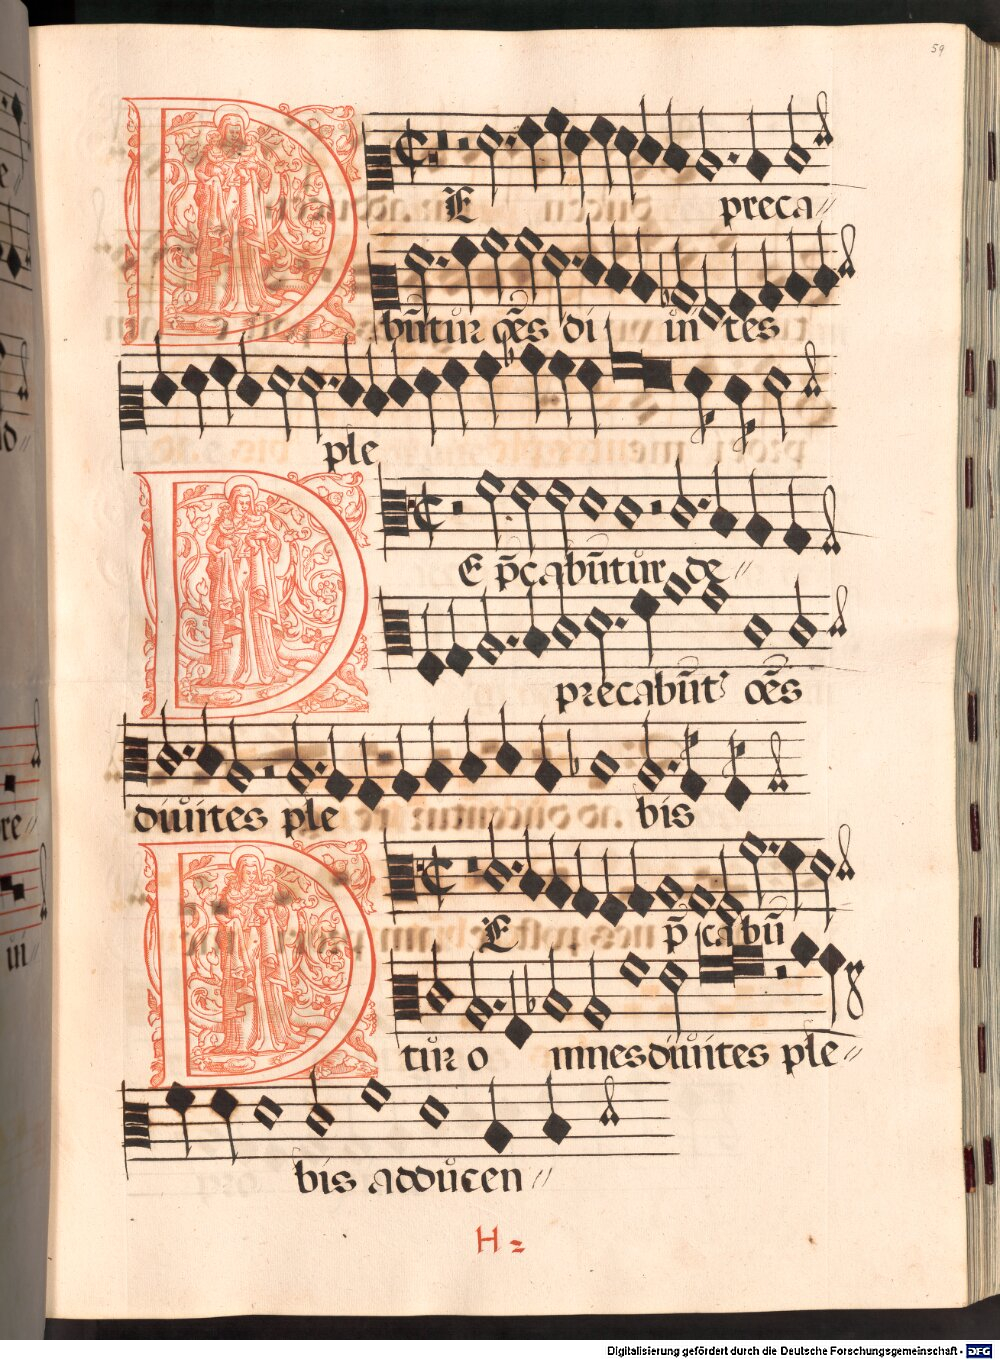 59
DE preca
bu̅tur o̅e̅s di ui tes
ple
DE p̅cabu̅tur de
precabu̅t o̅e̅s
diuites ple bis
DE p̅ cabu̅
tur o mnes diuites ple
bis adducen
H
Digitalisierung gefördert durch die Deutsche Forschungsgemeinschaft - DFG